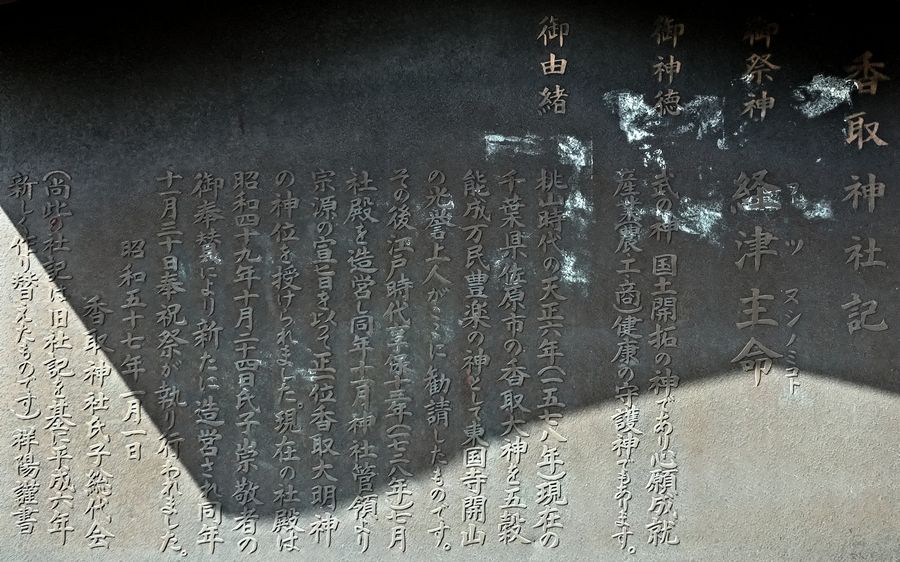 香取神社記
御祭神 経津主命
フ ツ ヌシノミコト
御神徳 武の神 国土開拓の神であり心願成就
産業(農・工・商)健康の守護神でもあります。
御由緒 桃山時代の天正六年(一五七八年)現在の
千葉県佐原市の香取大神を五穀
能成万民豊楽の神として東国寺開山
の光誉上人がここに勧請したものです。
その後江戸時代享保十三年(一七二八年)七月
社殿を造営し同年十一月神社管領より
宗源の宣旨を以って正一位香取大明神
の神位を授けられました。現在の社殿は
昭和四十九年十月二十四日氏子崇敬者の
御奉賛により新たに造営され同年
十一月三十日奉祝祭が執り行われました。
昭和五十七年一月一日
香取神社氏子総代会
(尚此の社記は旧社記を基に平成六年
新しく作り替えたものです)祥陽謹書